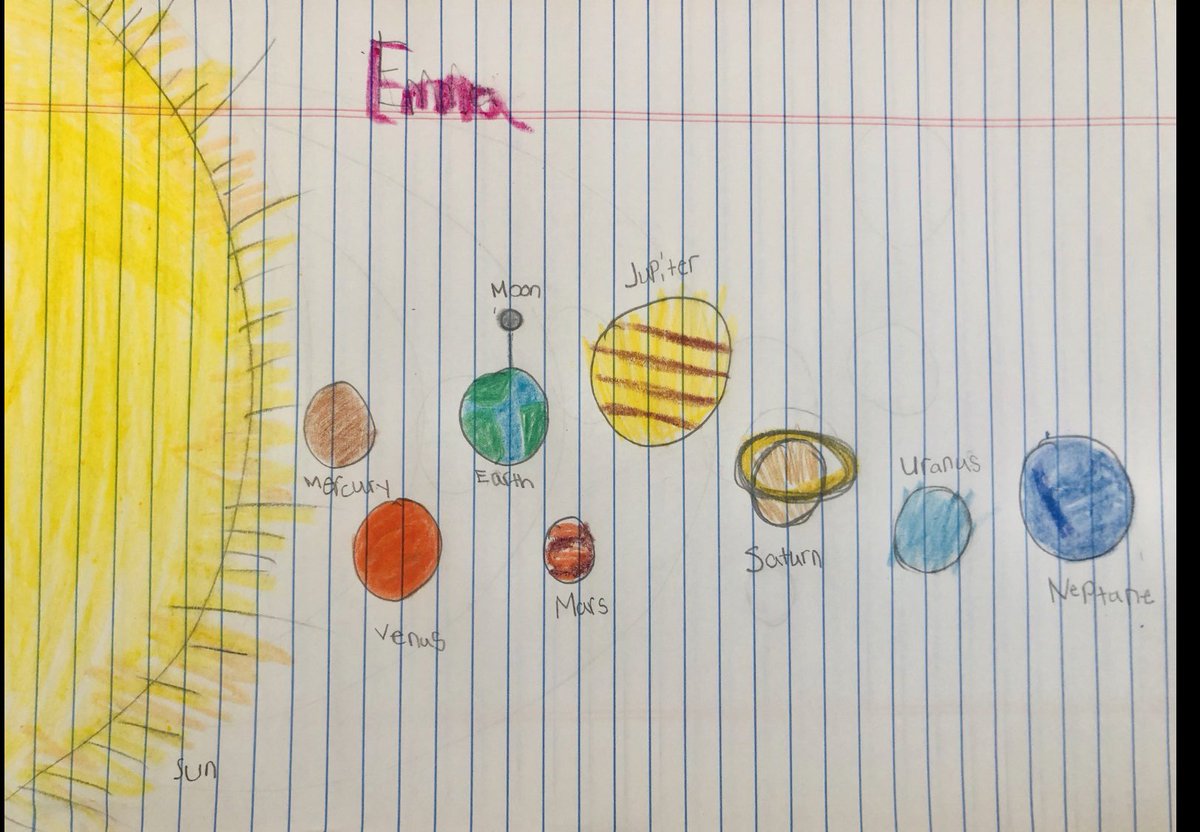 Emma
Moon
Jupiter
Mercury
Earth
Uranus
Saturn
Mars
Neptane
Venus
Sun